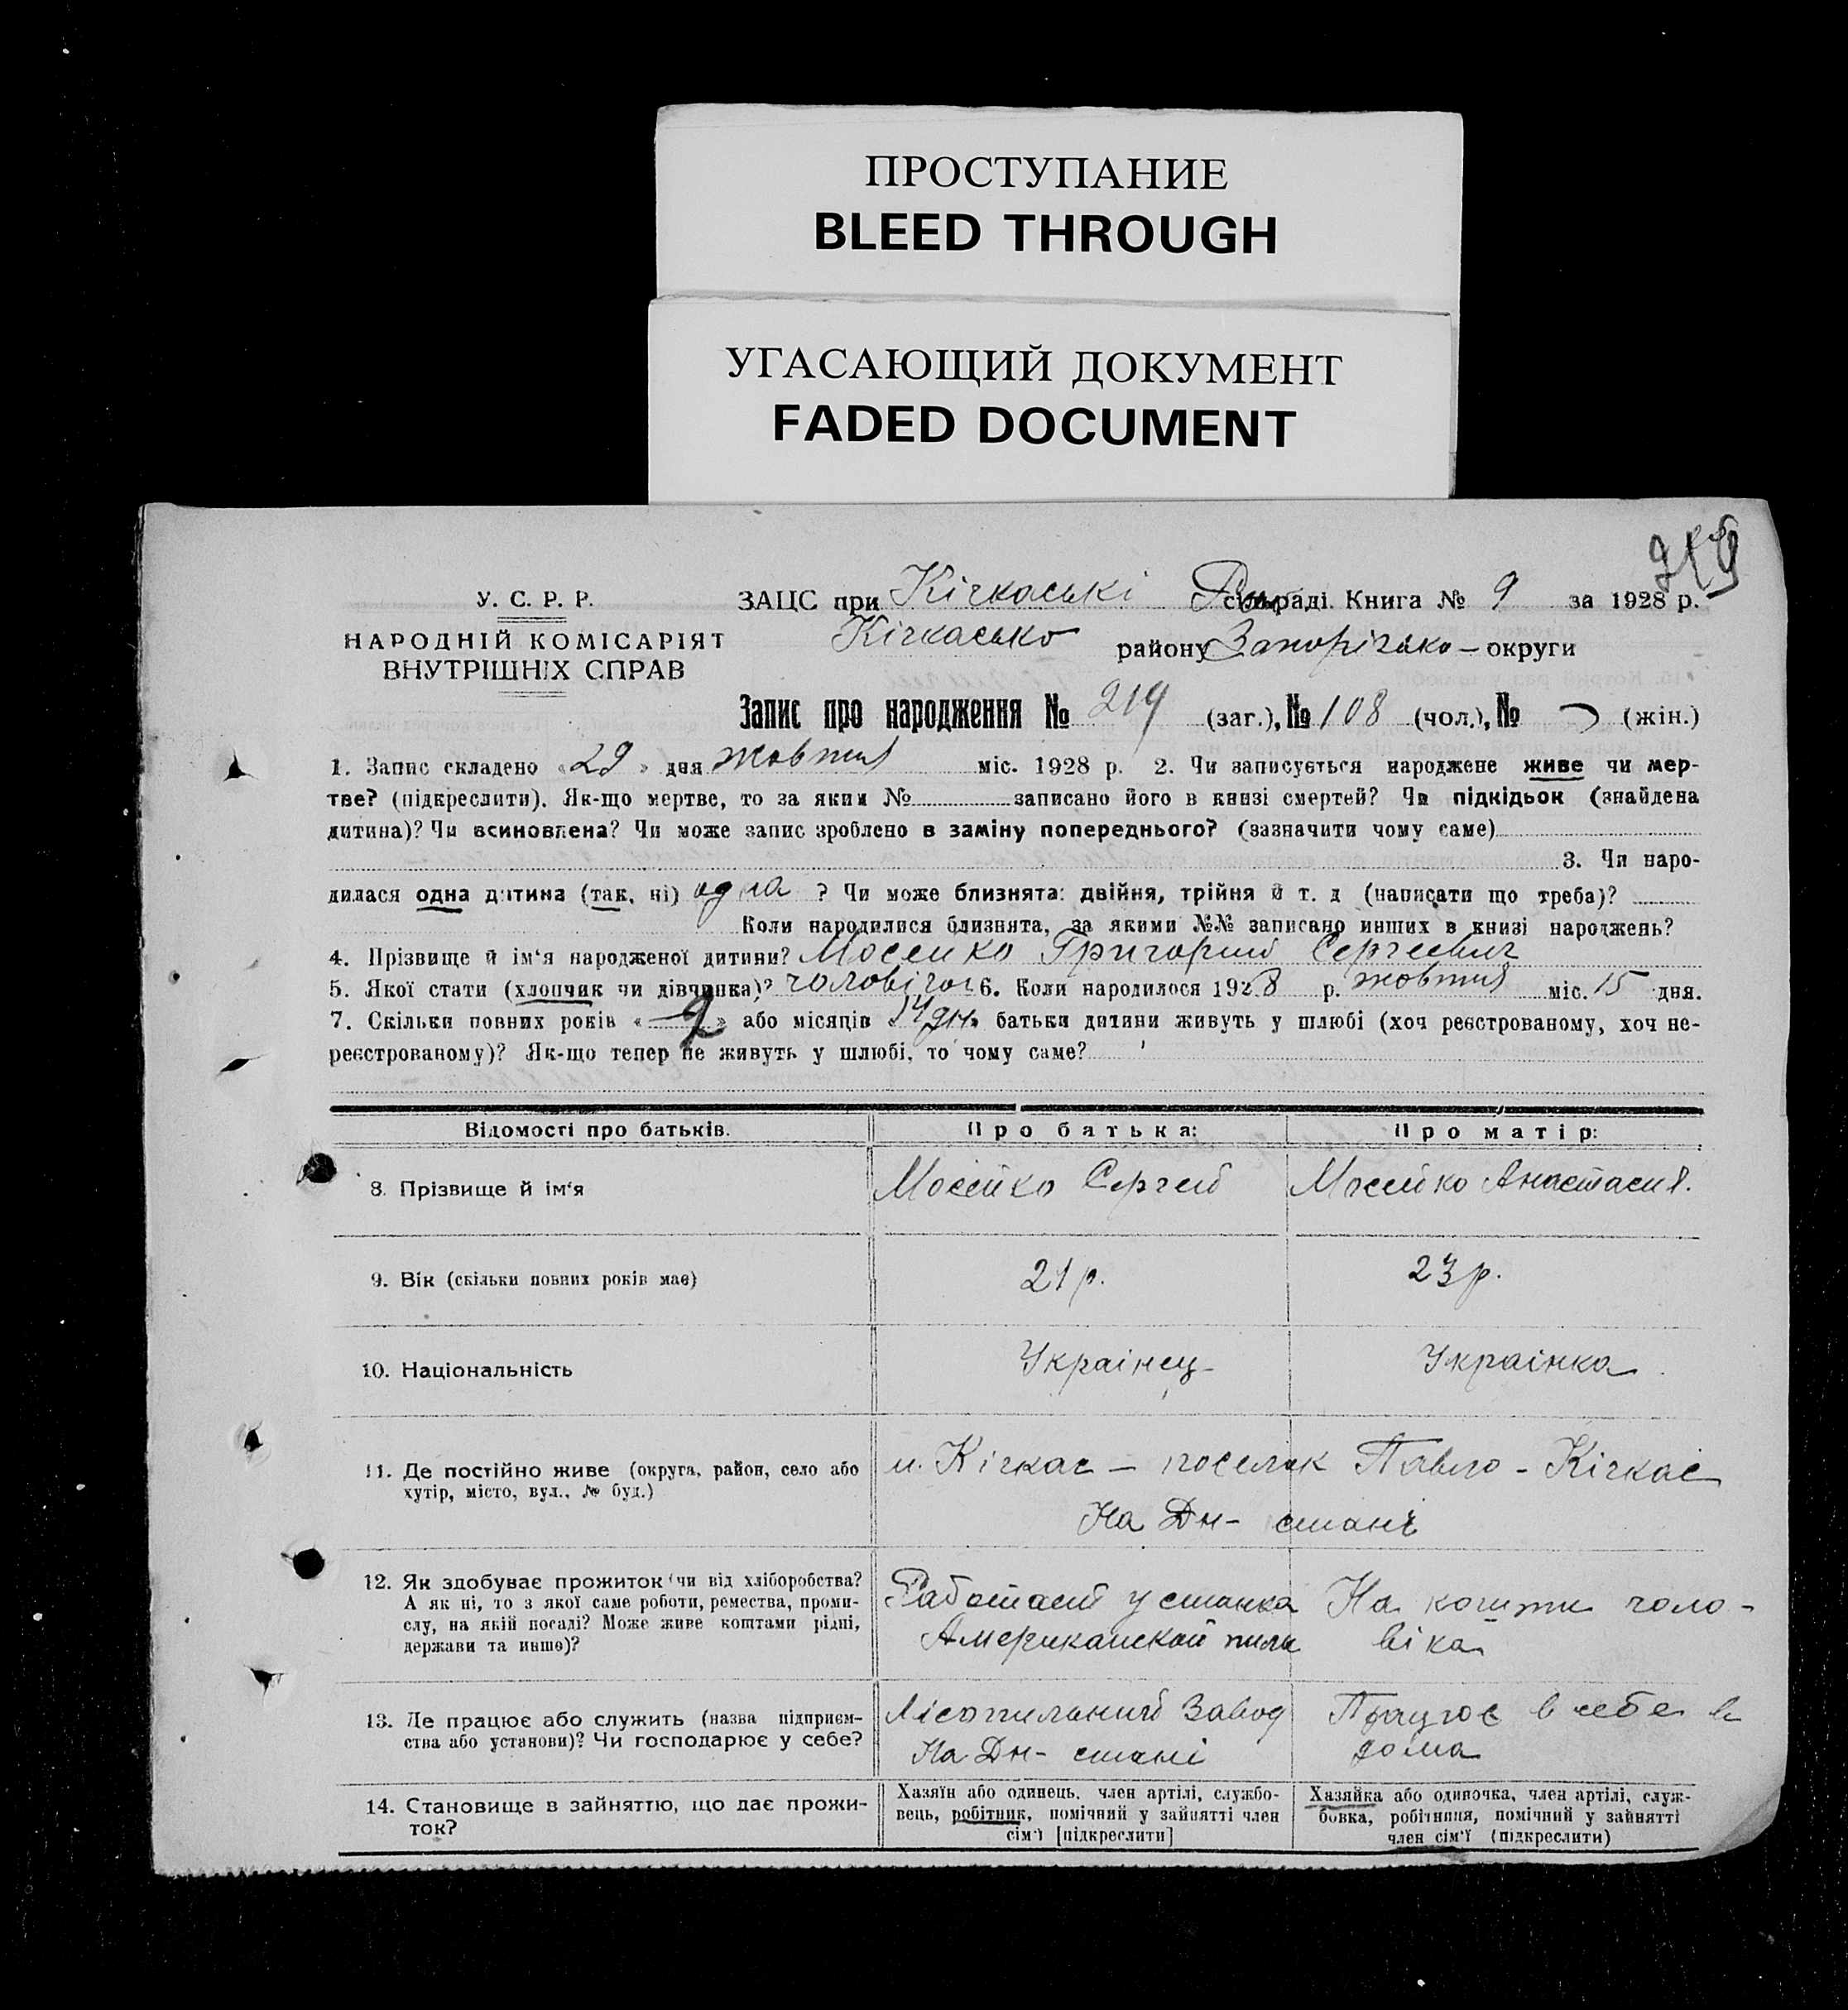 ПРОСТУПАНИЕ
BLEED THROUGH
УГАСАЮЩИЙ ДОКУМЕНТ
FADED DOCUMENT
У. С. Р. Р.
НАРОДНІЙ КОМІСАРІЯТ
ВНУТРІШНІХ СПРАВ
ЗАЦС при Кічкаські сільраді. Книга № 9 за 1928 р.
Кічкасько району Запорізько- округи
Запис про народження № 219 (заг.), № 108 (чол.), № (жін.)
1. Запис складено «29» дня жовтня міс. 1928 р. 2. Чи записується народжене живе чи мер-
тве? (підкреслити). Як-що мертве, то за яким № записано його в книзі смертей? Чи підкідьок (знайдена
дитина)? Чи всиновлена? Чи може запис зроблено в заміну попереднього? (зазначити чому саме)
3. Чи наро-
дилася одна дитина (так, ні) одна ? Чи може близнята: двійня, трійня й т. д (написати що треба)?
Коли народилися близнята, за якими №№ записано инших в книзі народжень?
4. Прізвище й ім'я народженої дитини? Мосейко Григорий Сергеевич
5. Якої стати (хлопчик чи дівчинка)? чоловічої 6. Коли народилося 1928 р. жовтня міс. 15 дня.
7. Скільки повних років « » або місяців « » батьки дитини живуть у шлюбі (хоч реєстрованому, хоч не-
реєстрованому)? Як-що тепер не живуть у шлюбі, то чому саме?
Відомості про батьків. Про батька: Про матір:
8. Прізвище й ім'я Мосейко Сергей Мосейко Анастасия.
9. Вік (скільки повних років має) 21 р. 23 р.
10. Національність Українец Українка
11. Де постійно живе (округа, район, село або м. Кічкас – поселок Павло-Кічкас
хутір, місто, вул., № буд.)
На Дн- стані
12. Як здобуває прожиток (чи від хліборобства? Работает у станка На кошти чоло-
А як ні, то з якої саме роботи, ремества, проми- Американской пили віка
слу, на якій посаді? Може живе коштами рідні,
держави та инше)?
13. Де працює або служить (назва підприєм- Лісопильний Завод Працює в себе в
ства або установи)? Чи господарює у себе? На Дн- стані дома
14. Становище в зайняттю, що дає прожи-
ток?
Хазяїн або одинець, член артілі, службо-
вець, робітник, помічний у зайнятті член
сім'ї [підкреслити]
Хазяйка або одиночка, член артілі, служ-
бовка, робітниця, помічний у зайнятті
член сім'ї (підкреслити)